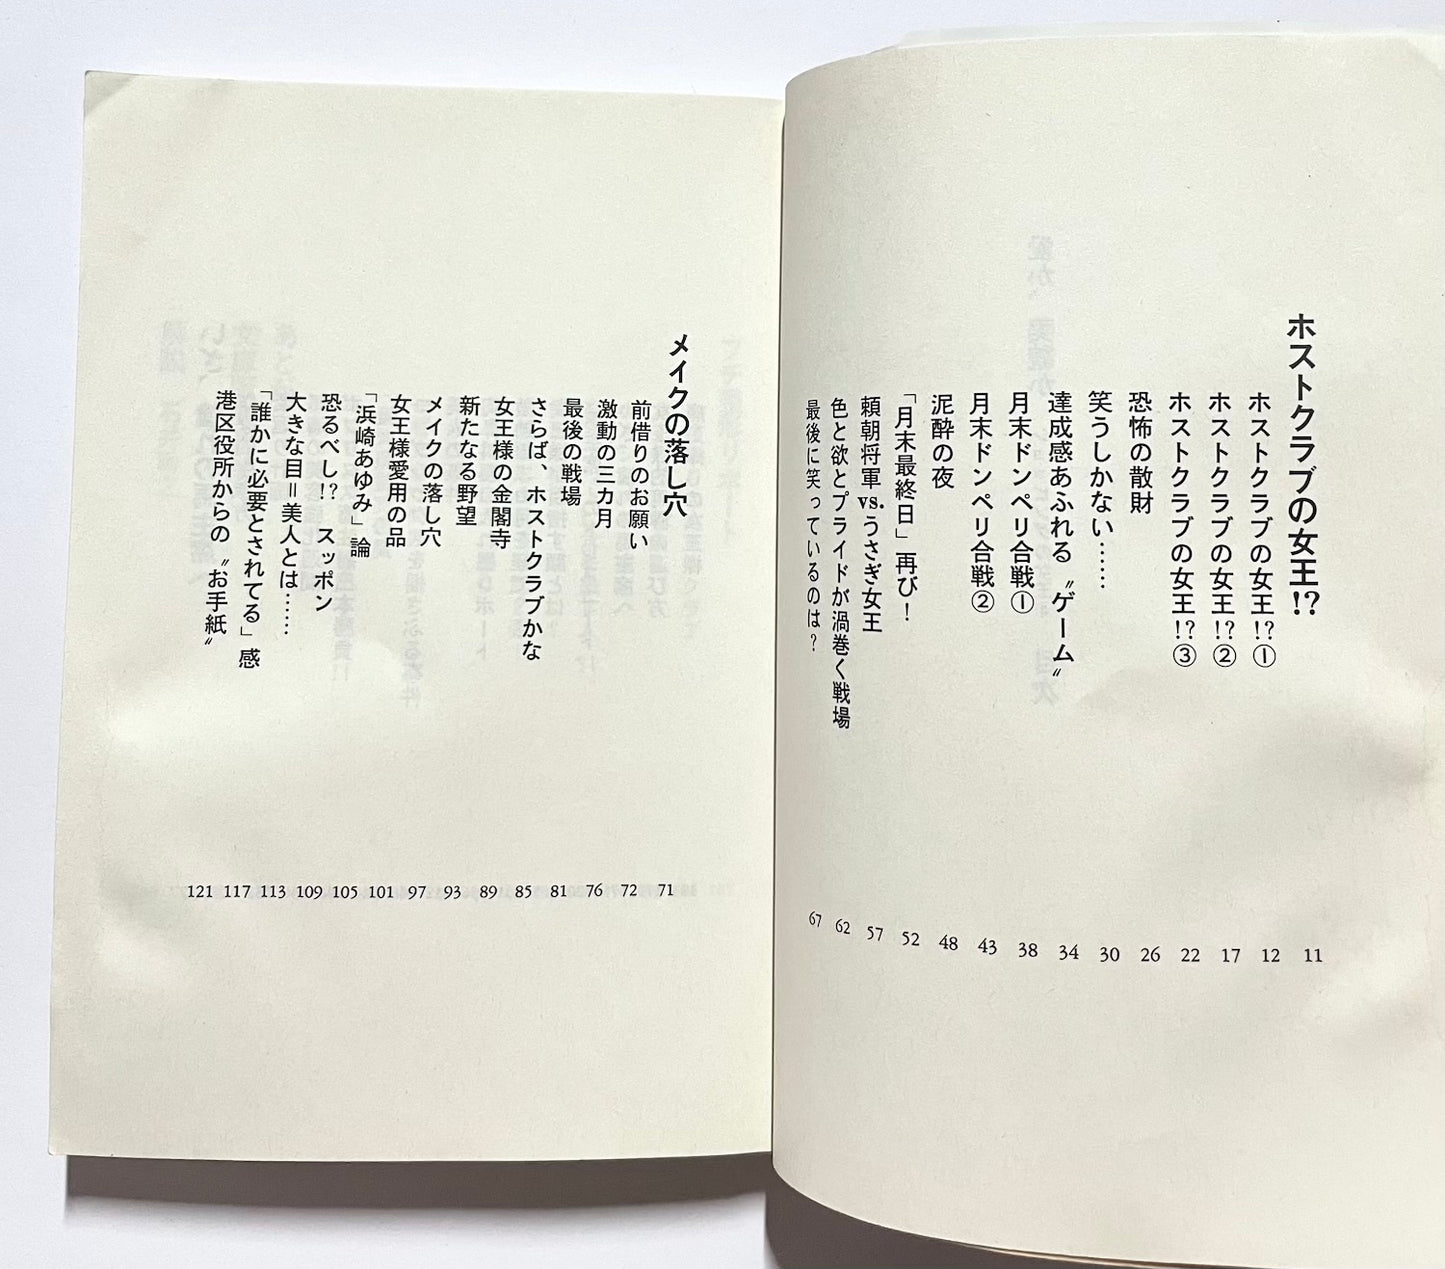 ホストクラブの女王!?
ホストクラブの女王!?①
ホストクラブの女王!?②
ホストクラブの女王!?③
恐怖の散財
笑うしかない……
達成感あふれる〝ゲーム〟
月末ドンペリ合戦①
月末ドンペリ合戦②
泥酔の夜
「月末最終日」再び！
頼朝将軍vs.うさぎ女王
色と欲とプライドが渦巻く戦場
最後に笑っているのは？
11
12
17
22
26
30
34
38
43
48
52
57
62
67
メイクの落し穴
前借りのお願い
激動の三カ月
最後の戦場
さらば、ホストクラブかな
女王様の金閣寺
新たなる野望
メイクの落し穴
女王様愛用の品
「浜崎あゆみ」論
恐るべし!?　スッポン
大きな目＝美人とは……
「誰かに必要とされてる」感
港区役所からの〝お手紙〟
71
72
76
81
85
89
93
97
101
105
109
113
117
121